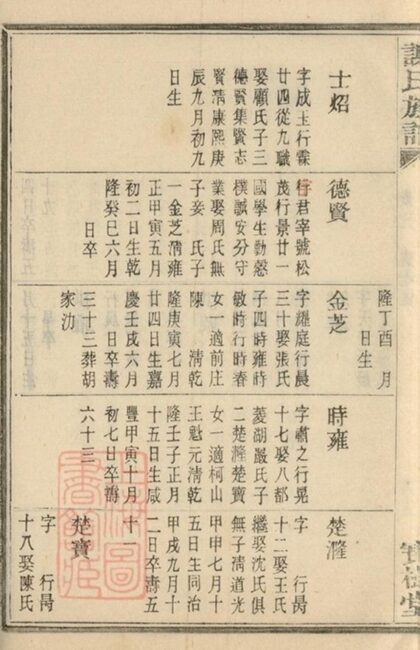 氏族譜
樹堂
士炤
字成玉行霖
廿四從九職
娶顧氏子三
德賢集賢志
賢淸康熙庚
辰九月初九
日生
德賢
字君宰號松
茂行景廿一
國學生勤慤
樸誠安分守
業娶周氏無
子妾 氏子
一金芝淸雍
正甲寅五月
初二日生乾
隆癸巳六月
日卒
隆丁酉 月
日生
金芝
字耀庭行晨
三十娶張氏
子四時雍時
敏時行時春
女一適前庄
陳 淸乾
隆庚寅七月
廿四日生嘉
慶壬戌六月
日卒壽
三十三葬胡
家沕
時雍
字黼之行晃
十七娶八都
菱湖嚴氏子
二楚瀊楚寶
女一適柯山
王魁元淸乾
隆壬子正月
十五日生咸
豐甲寅十月
初七日卒壽
六十三
楚瀊
字 行昺
十二娶王氏
繼娶沈氏俱
無子淸道光
甲申七月十
五日生同治
甲戌九月十
二日卒壽五
十
楚寶
字 行昺
十八娶陳氏